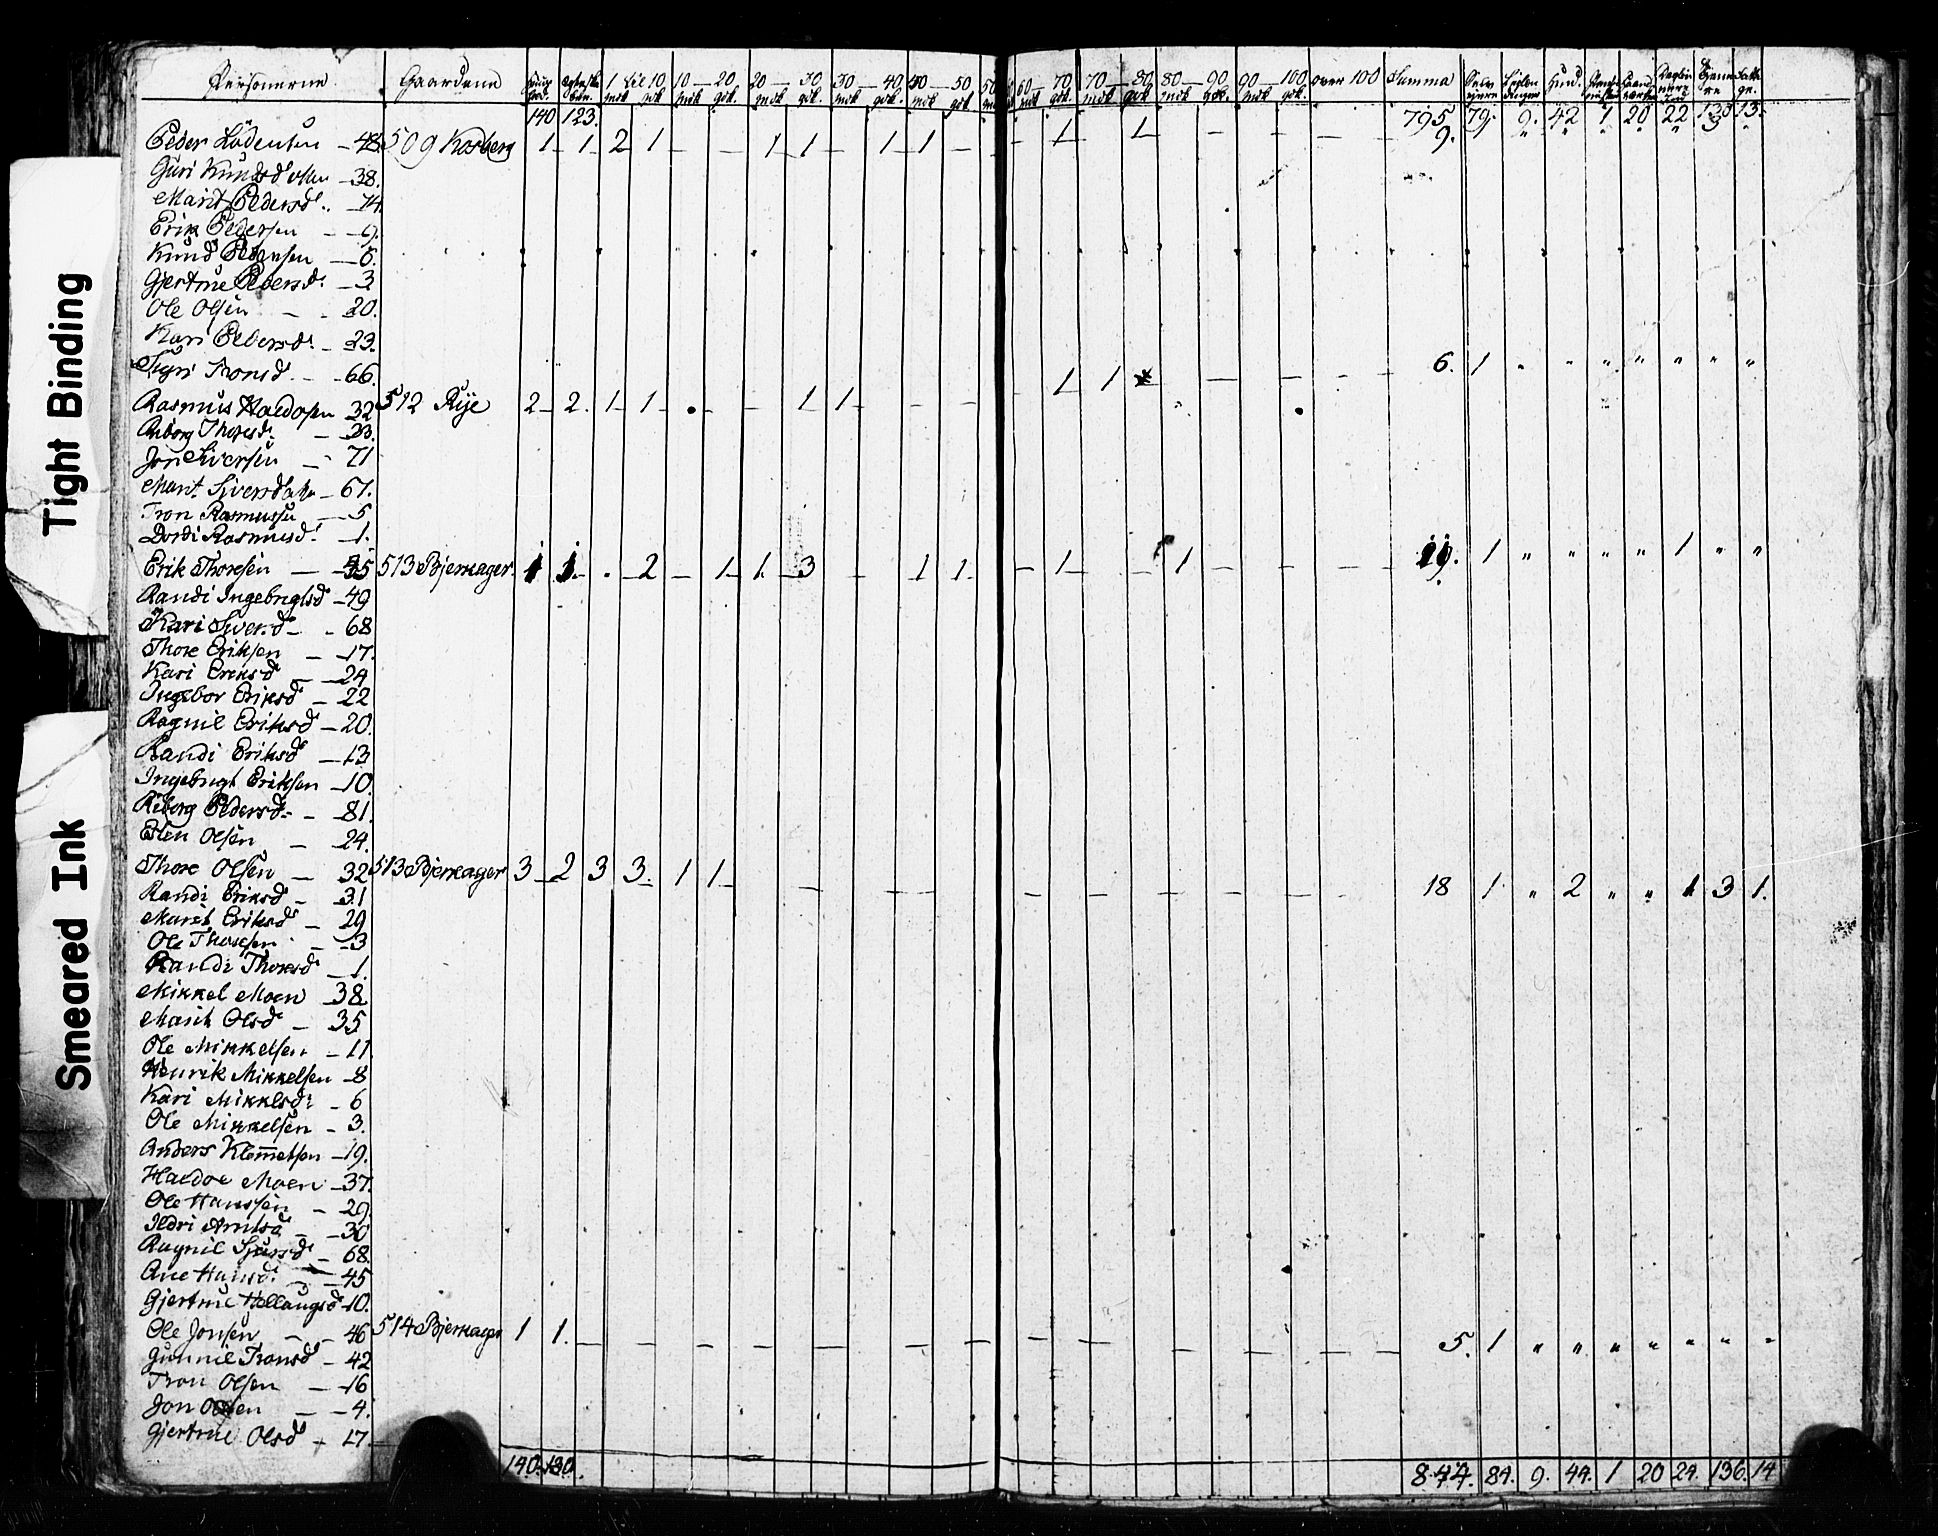 Tight Binding
Smeared Ink
Personerne Gaardene 1 til 10 10 — 20 20 — 30 30 — 40 40 — 50 50 60 — 70 70 — 80 80 — 90 90 — 100 over 100 Summa Hund.
140 123. 795 79. 9. 42 1 20 22 13.
Peder Lodensen — 48 509 Kosberg 1 1 2 1 1 1 1 1 1 1 9.
Guri Knudsdatter — 38.
Marit Pedersd. — 14.
Erik Pedersen — 9.
Knud Pedersen — 6.
Gjertrue Pedersd. — 3
Ole Olsen — 20.
Kari Pedersd. — 23.
Tronsd. — 66. 1 1 6. 1 " " " " " " "
Rasmus Haldosen 32 512 Rye 2 2. 1 1 1 1
Thoresd. — 33.
Jon Siversen — 71
Marit Siversdatter — 67.
Tron Rasmussen — 5
Dordi Rasmusd. — 1.
Erik Thoresen — 45 513 Bjerkager 1 1 2 1 1 3 1 1 1 1 19. 1 " " " " 1 " "
Randi Ingebrigtsd — 49
Kari Siversd — 68
Thore Eriksen — 17.
Kari Eriksd — 24
Ingebor Eriksd — 22
Ragnil Eriksd — 20.
Randi Eriksd — 13
Ingebrigt Eriksen — 10.
Pedersd. — 81.
Esten Olsen — 24.
Thore Olsen — 32 513 Bjerkager 3 2 3 3. 1 1 18 1 " 2 " " 1 3 1.
Randi Eriksd — 31
Marit Eriksd — 29
Ole Thoresen — 3
Randi Thoresd — 1.
Mikkel Moen 38
Marit Olsd — 35
Ole Mikkelsen — 11.
Henrik Mikkelsen — 8
Kari Mikkelsd: — 6
Ole Mikkelsen — 3.
Anders Klemetsen — 19.
Haldoe Moen — 37.
Ole Hanssen — 29.
Ildri Arntsd — 30
Ragnil Sjursd — 68.
Ane Hansd. — 45
Gjertrue Hellaugsd — 10.
Ole Jonsen — 46 514 Bjerkager 1 1. 5. 1 " " " " " " "
Gunnil Tronsd — 42
Tron Olsen — 16
Jon Olsen — 4.
Gjertrue Olsd — 17.
140. 130. 847. 84. 9. 44. 1 20 24. 136. 14